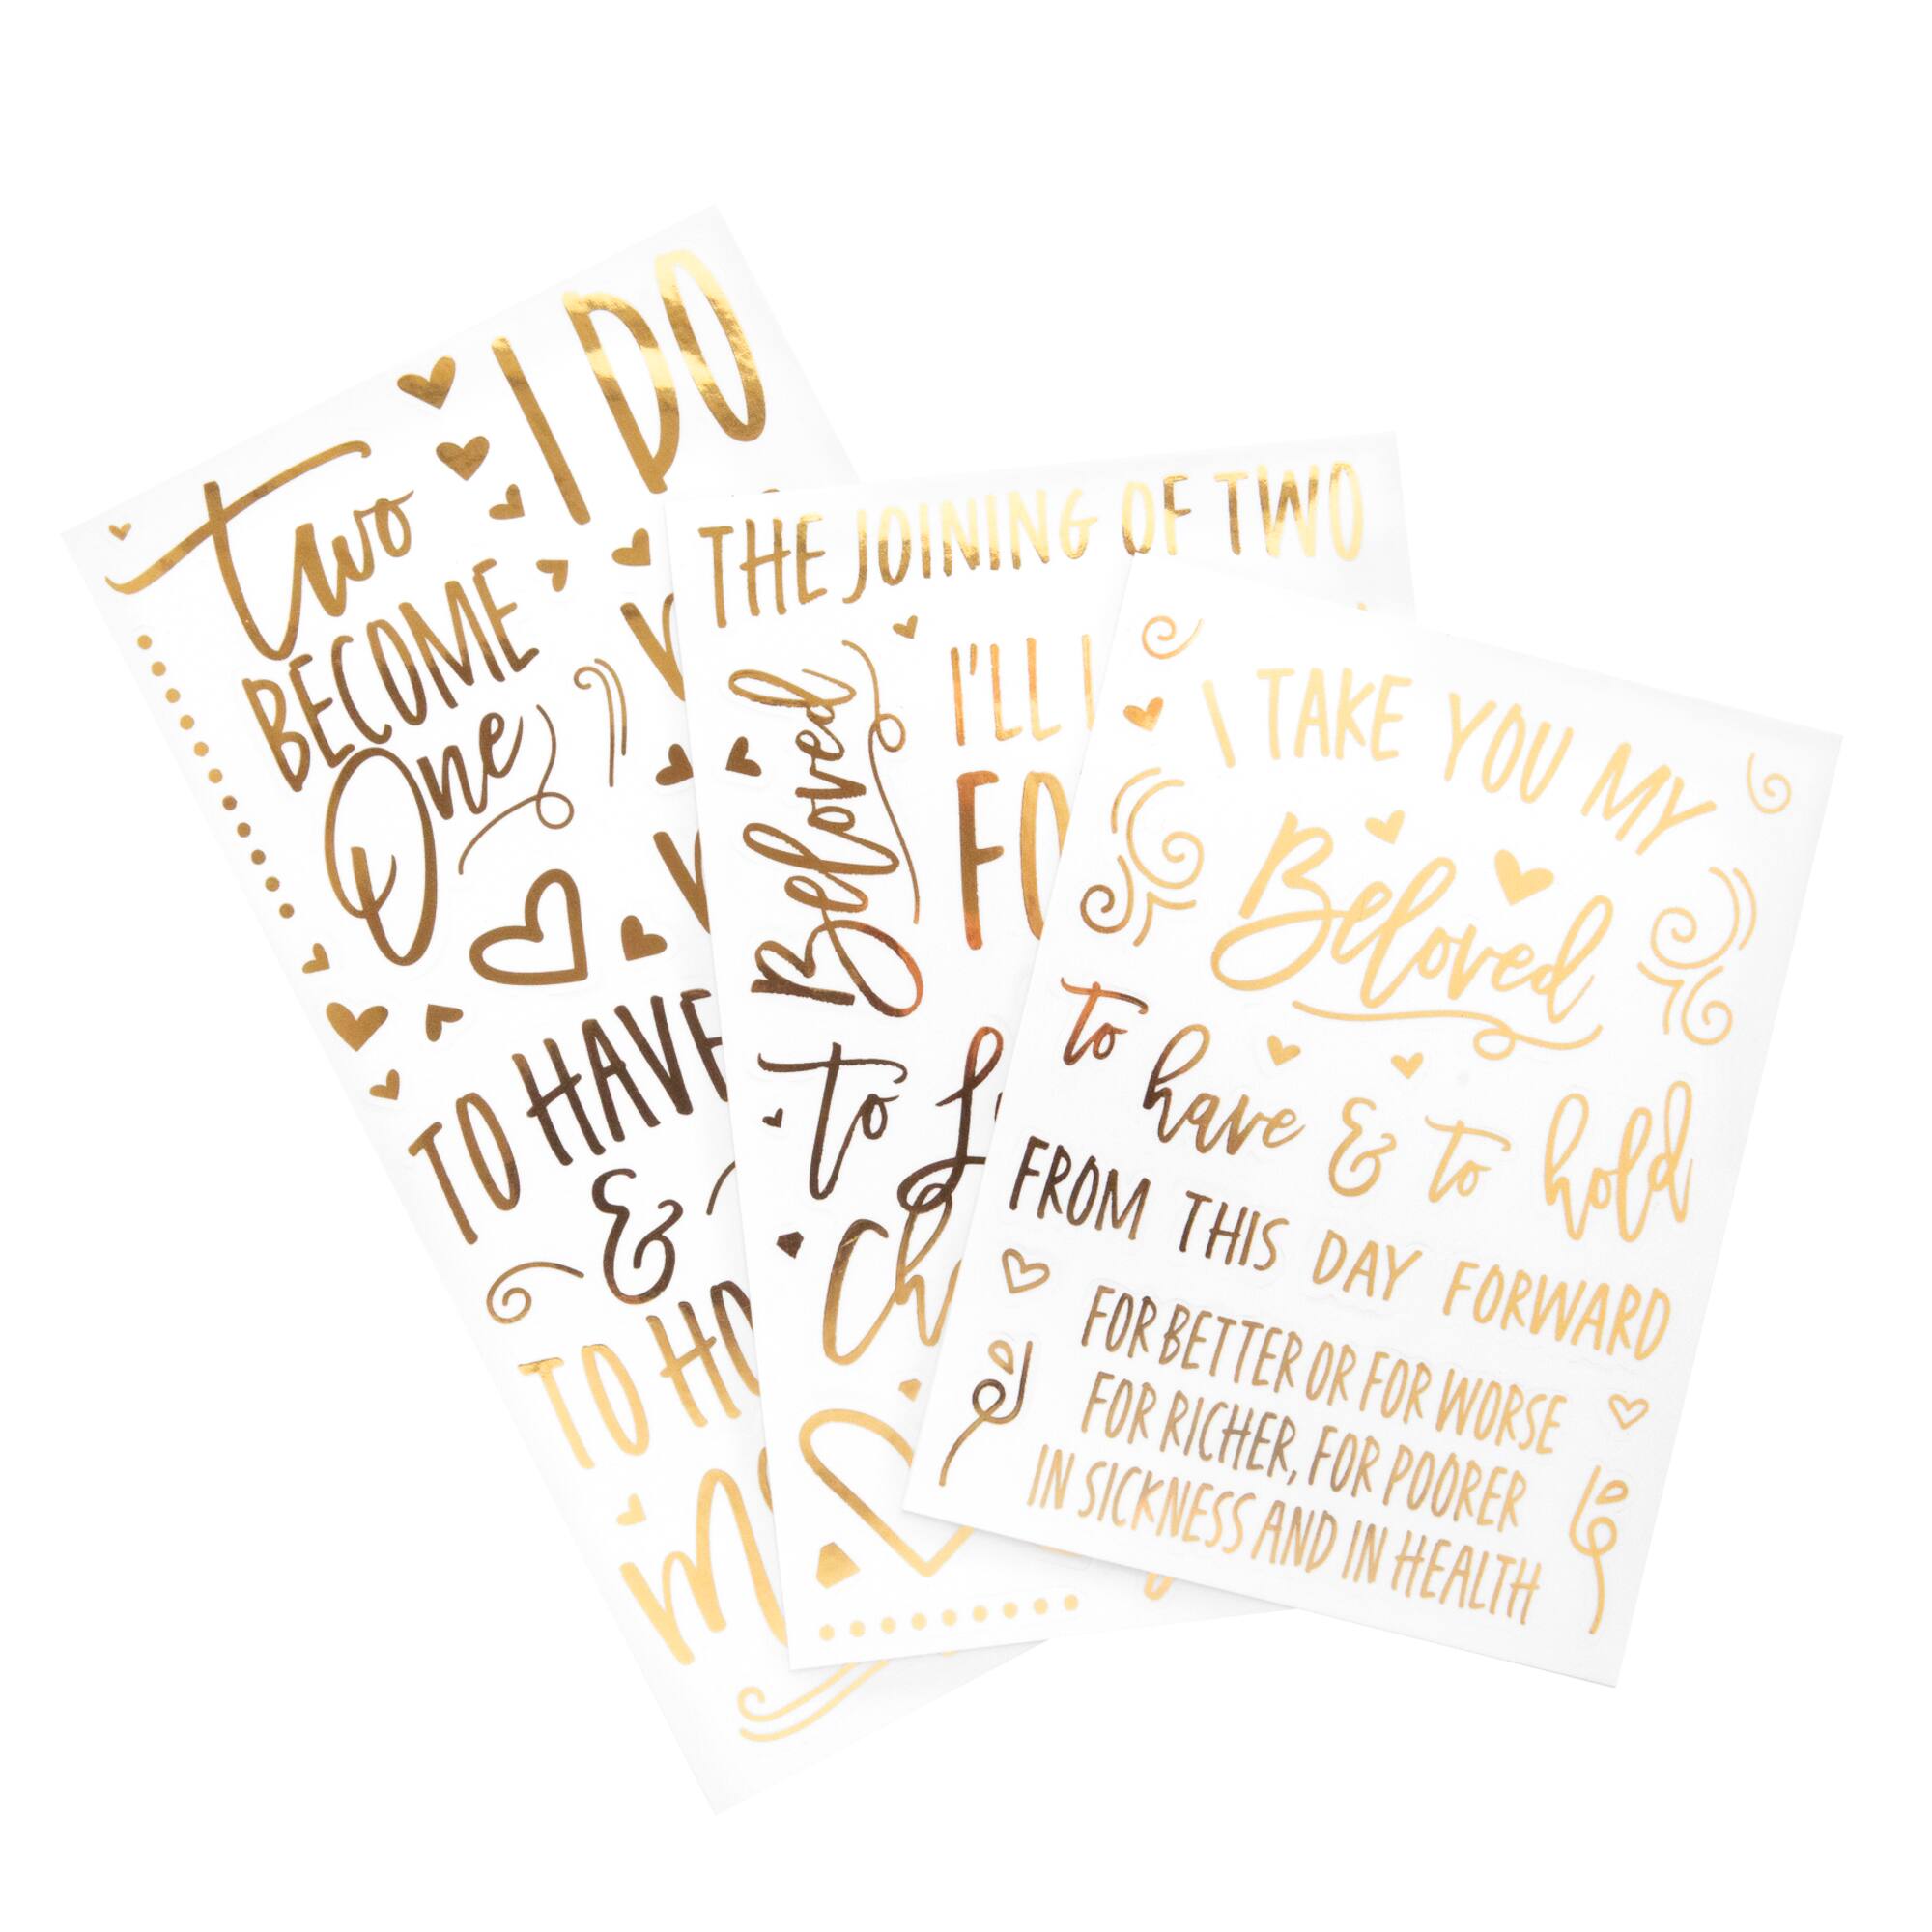 I DO
two
BECOME
One
TO HAVE
&
TO
THE JOINING OF TWO
Beloved
I'LL
to
I TAKE YOU MY
Beloved
to have & to hold
FROM THIS DAY FORWARD
FOR BETTER OR FOR WORSE
FOR RICHER, FOR POORER
IN SICKNESS AND IN HEALTH